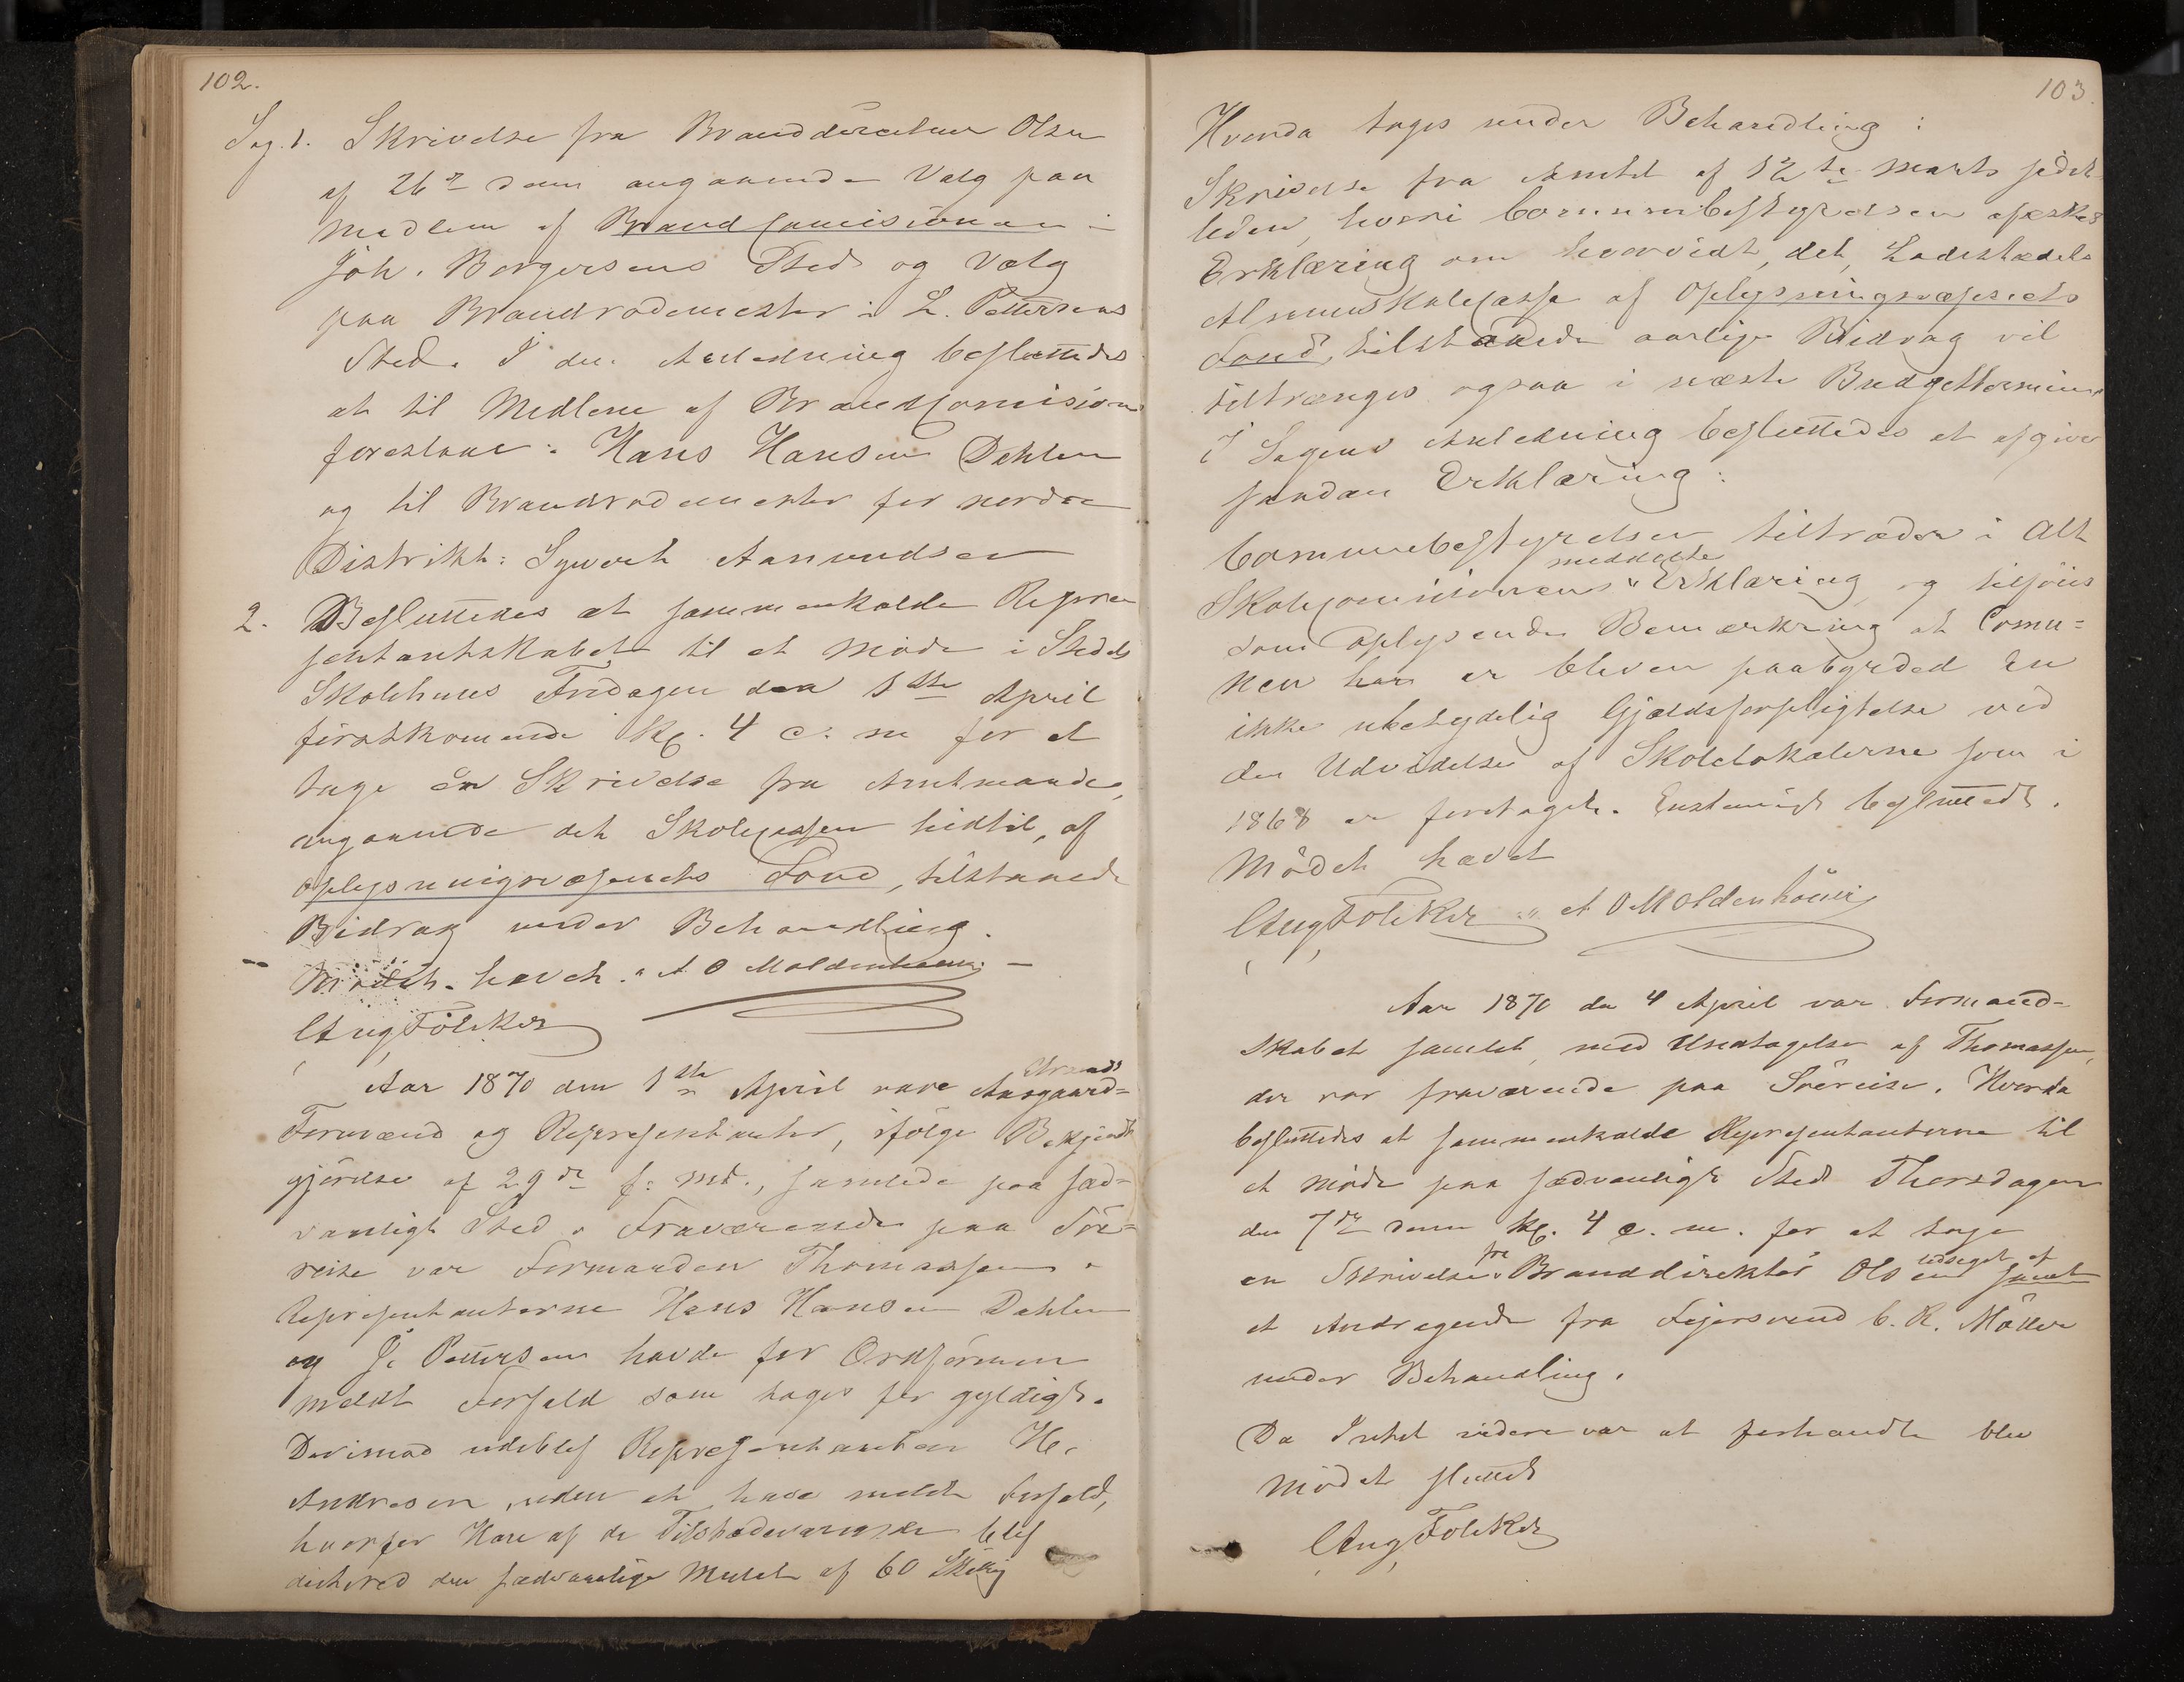 102.
Sag. 1. Skrivelse fra Branddirecteur Olsen
af 26de dennes angaaende Valg paa
Medlem af Brandcomisionen i
Joh. Borgersens Sted og Valg
paa Brandrodemester i L. Pettersens
Sted. I den Anledning besluttedes
at til Medlem af Brandcomisionen
foreslaaes: Hans Hansen Dahlen
og til Brandrodemester for nordre
Distrikt: Syvert Aanundsen
2. Besluttedes at sammenkalde Repræ
sentantskabet til et Møde i Stedets
Skolehuus Fredagen den 1ste April
førstkomende Kl. 4 e. m for at
tage en Skrivelse fra Amtmanden,
angaaende det Skolecassen hidtil, af
Oplysningsvæsenets Fond, tilstaaede
Bidrag under Behandling.
Mødet hævet. A O Moldenhauer
CAug Fölcker
Aar 1870 den 1ste April vare Aasgaard=
strands
Formænd og Repræsentanter, ifølge Bekjendt
gjørelse af 29de f: Md., samlede paa sæd=
vanligt Sted. Fraværende paa Søe=
reise var Formanden Thomassen.
Repræsentanterne Hans Hansen Dahlen
og J. Pettersen havde for Ordføreren
meldt Forfald som toges for gyldigt.
Derimod udeblef Repræsentanten He.
Andresen, uden at have meldt Forfald,
hvorfor Han af de Tilstedeværende blef
dictered den sædvanlige Mulct af 60 Skilling
103.
Hvorda toges under Behandling:
Skrivelse fra Amtet af 12te Marts sidst
leden, hvori Communebestyrelsen afæskes
Erklæring om hvorvidt, det, Ladestedets
Almueskolecasse af Oplysningsvæsenets
Fond, tilstaaede aarlige Bidrag vil
tiltrænges ogsaa i næste Budgettermin.
I Sagens Anledning besluttedes at afgive
saadan Erklæring:
Communebestyrelsen tiltræder i Alt
Skolecomisionens meddeelte Erklæring og tilføies
som oplysende Bemærkning at Comu=
nen har er bleven paabyrded en
ikke ubetydelig Gjældsforpligtelse ved
den Udvidelse af Skolelokalerne som i
1868 er foretaget. Enstemigt besluttedt.
Mødet hævet
CAug Fölcker A O Moldenhauer
Aar 1870 den 4 April var Formand=
skabet samlet, med Undtagelse af Thomassen,
der var fraværende paa Søereise. Hvorda
besluttedes at sammenkalde Repræsentanterne til
et Møde paa sædvanligt Sted Thorsdagen
den 7de dennes Kl. 4 e. m. for at tage
en Skrivelse fra Branddirektør Olsen ledsaget af samt
et Andragende fra Fejersvend C. R. Møller
under Behandling.
Da Intet videre var at forhandle blev
Mødet sluttet
CAug Fölcker